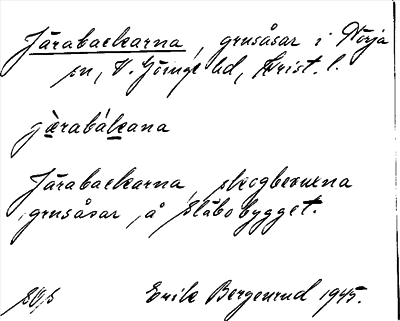 Järabackarna, grusåsar i Norja
sn, V. Göinge hd, Krist. l.
jærabákana
Järabackarna, skogbevuxna
grusåsar, å Slätbobygget.
Erik Bergenrud 1945.